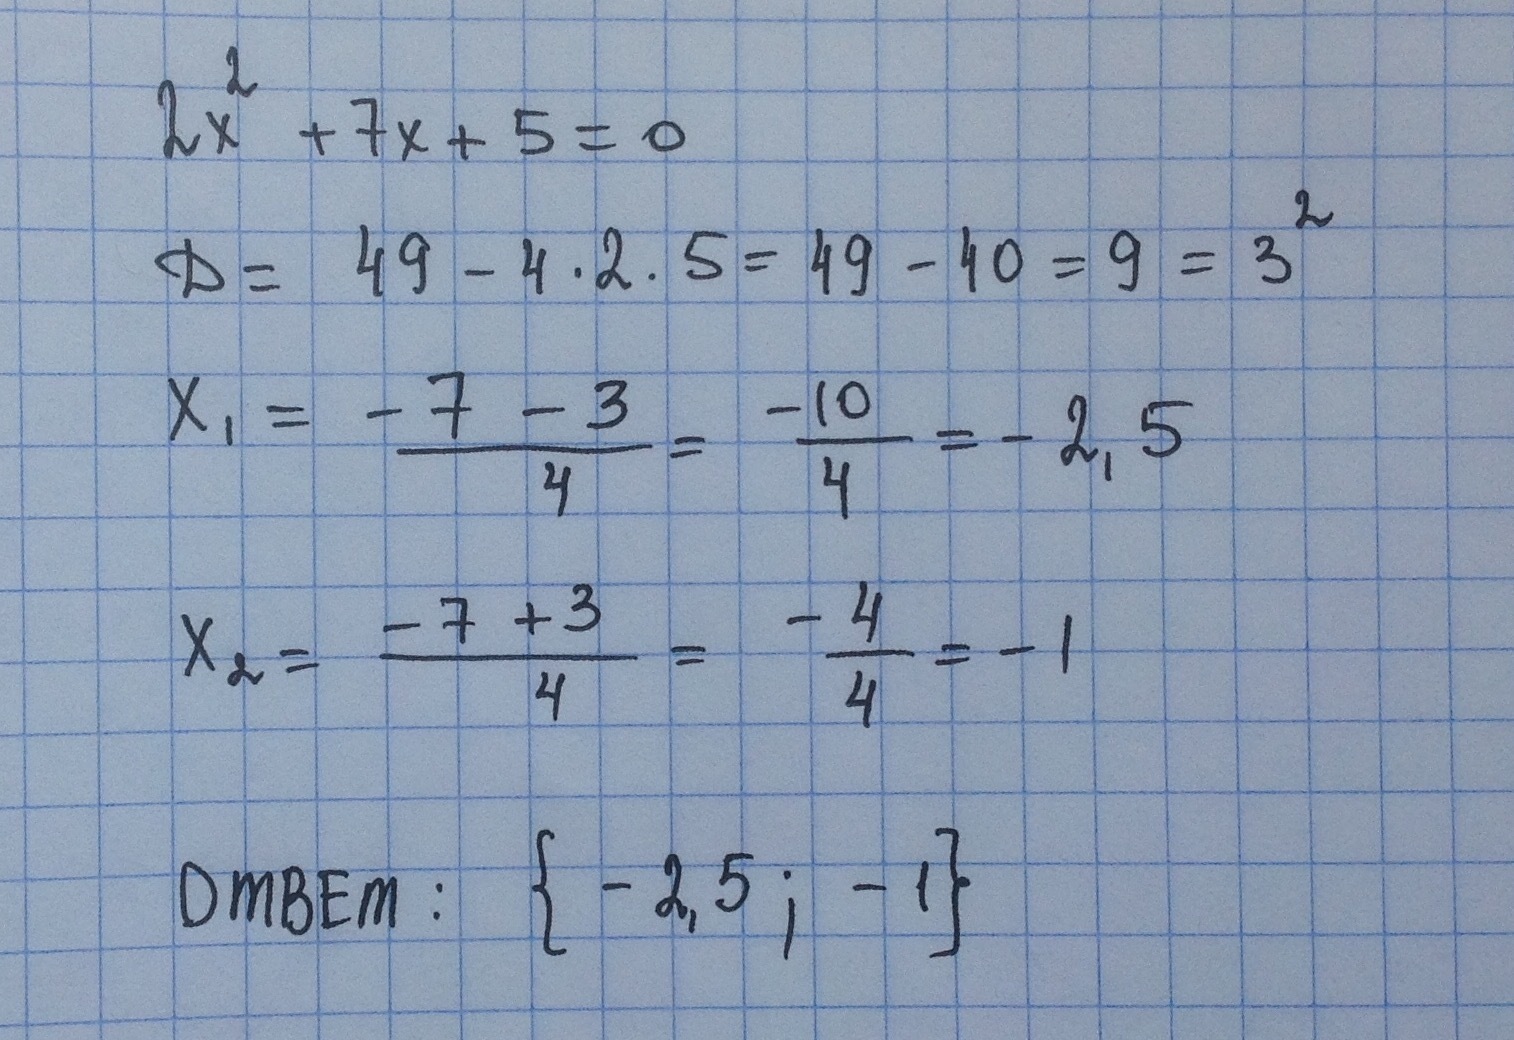 2x² + 7x + 5 = 0
D = 49 - 4 · 2 · 5 = 49 - 40 = 9 = 3²
x₁ = (-7 - 3)/4 = -10/4 = -2,5
x₂ = (-7 + 3)/4 = -4/4 = -1
Ответ: {-2,5; -1}